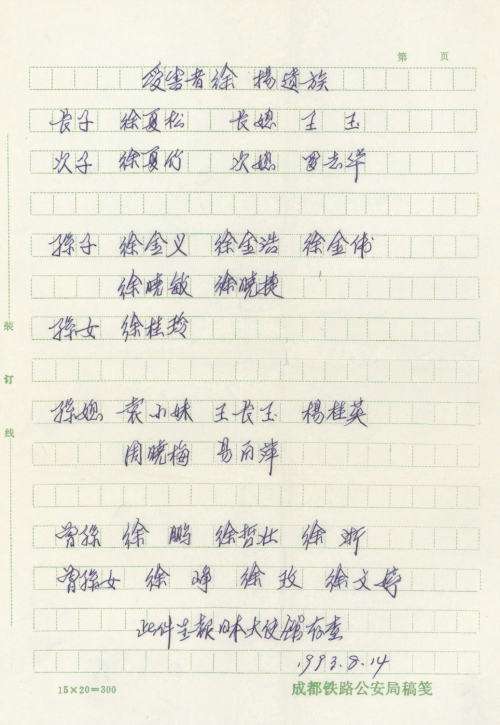 第 页
受害者徐 楊遗族
长子 徐夏松 长媳 王 玉
次子 徐夏竹 次媳 罗志华
孫子 徐金义 徐金浩 徐金伟
徐晓敏 徐晓捷
孫女 徐桂玲
孫媳 袁小妹 王长玉 楊桂英
周晓梅 易 萍
曾孫 徐 鹏 徐哲壮 徐 浙
曾孫女 徐 峥 徐 玫 徐文婷
此件呈報日本大使館存查
1993.8.14
装
订
线
15×20=300
成都铁路公安局稿笺